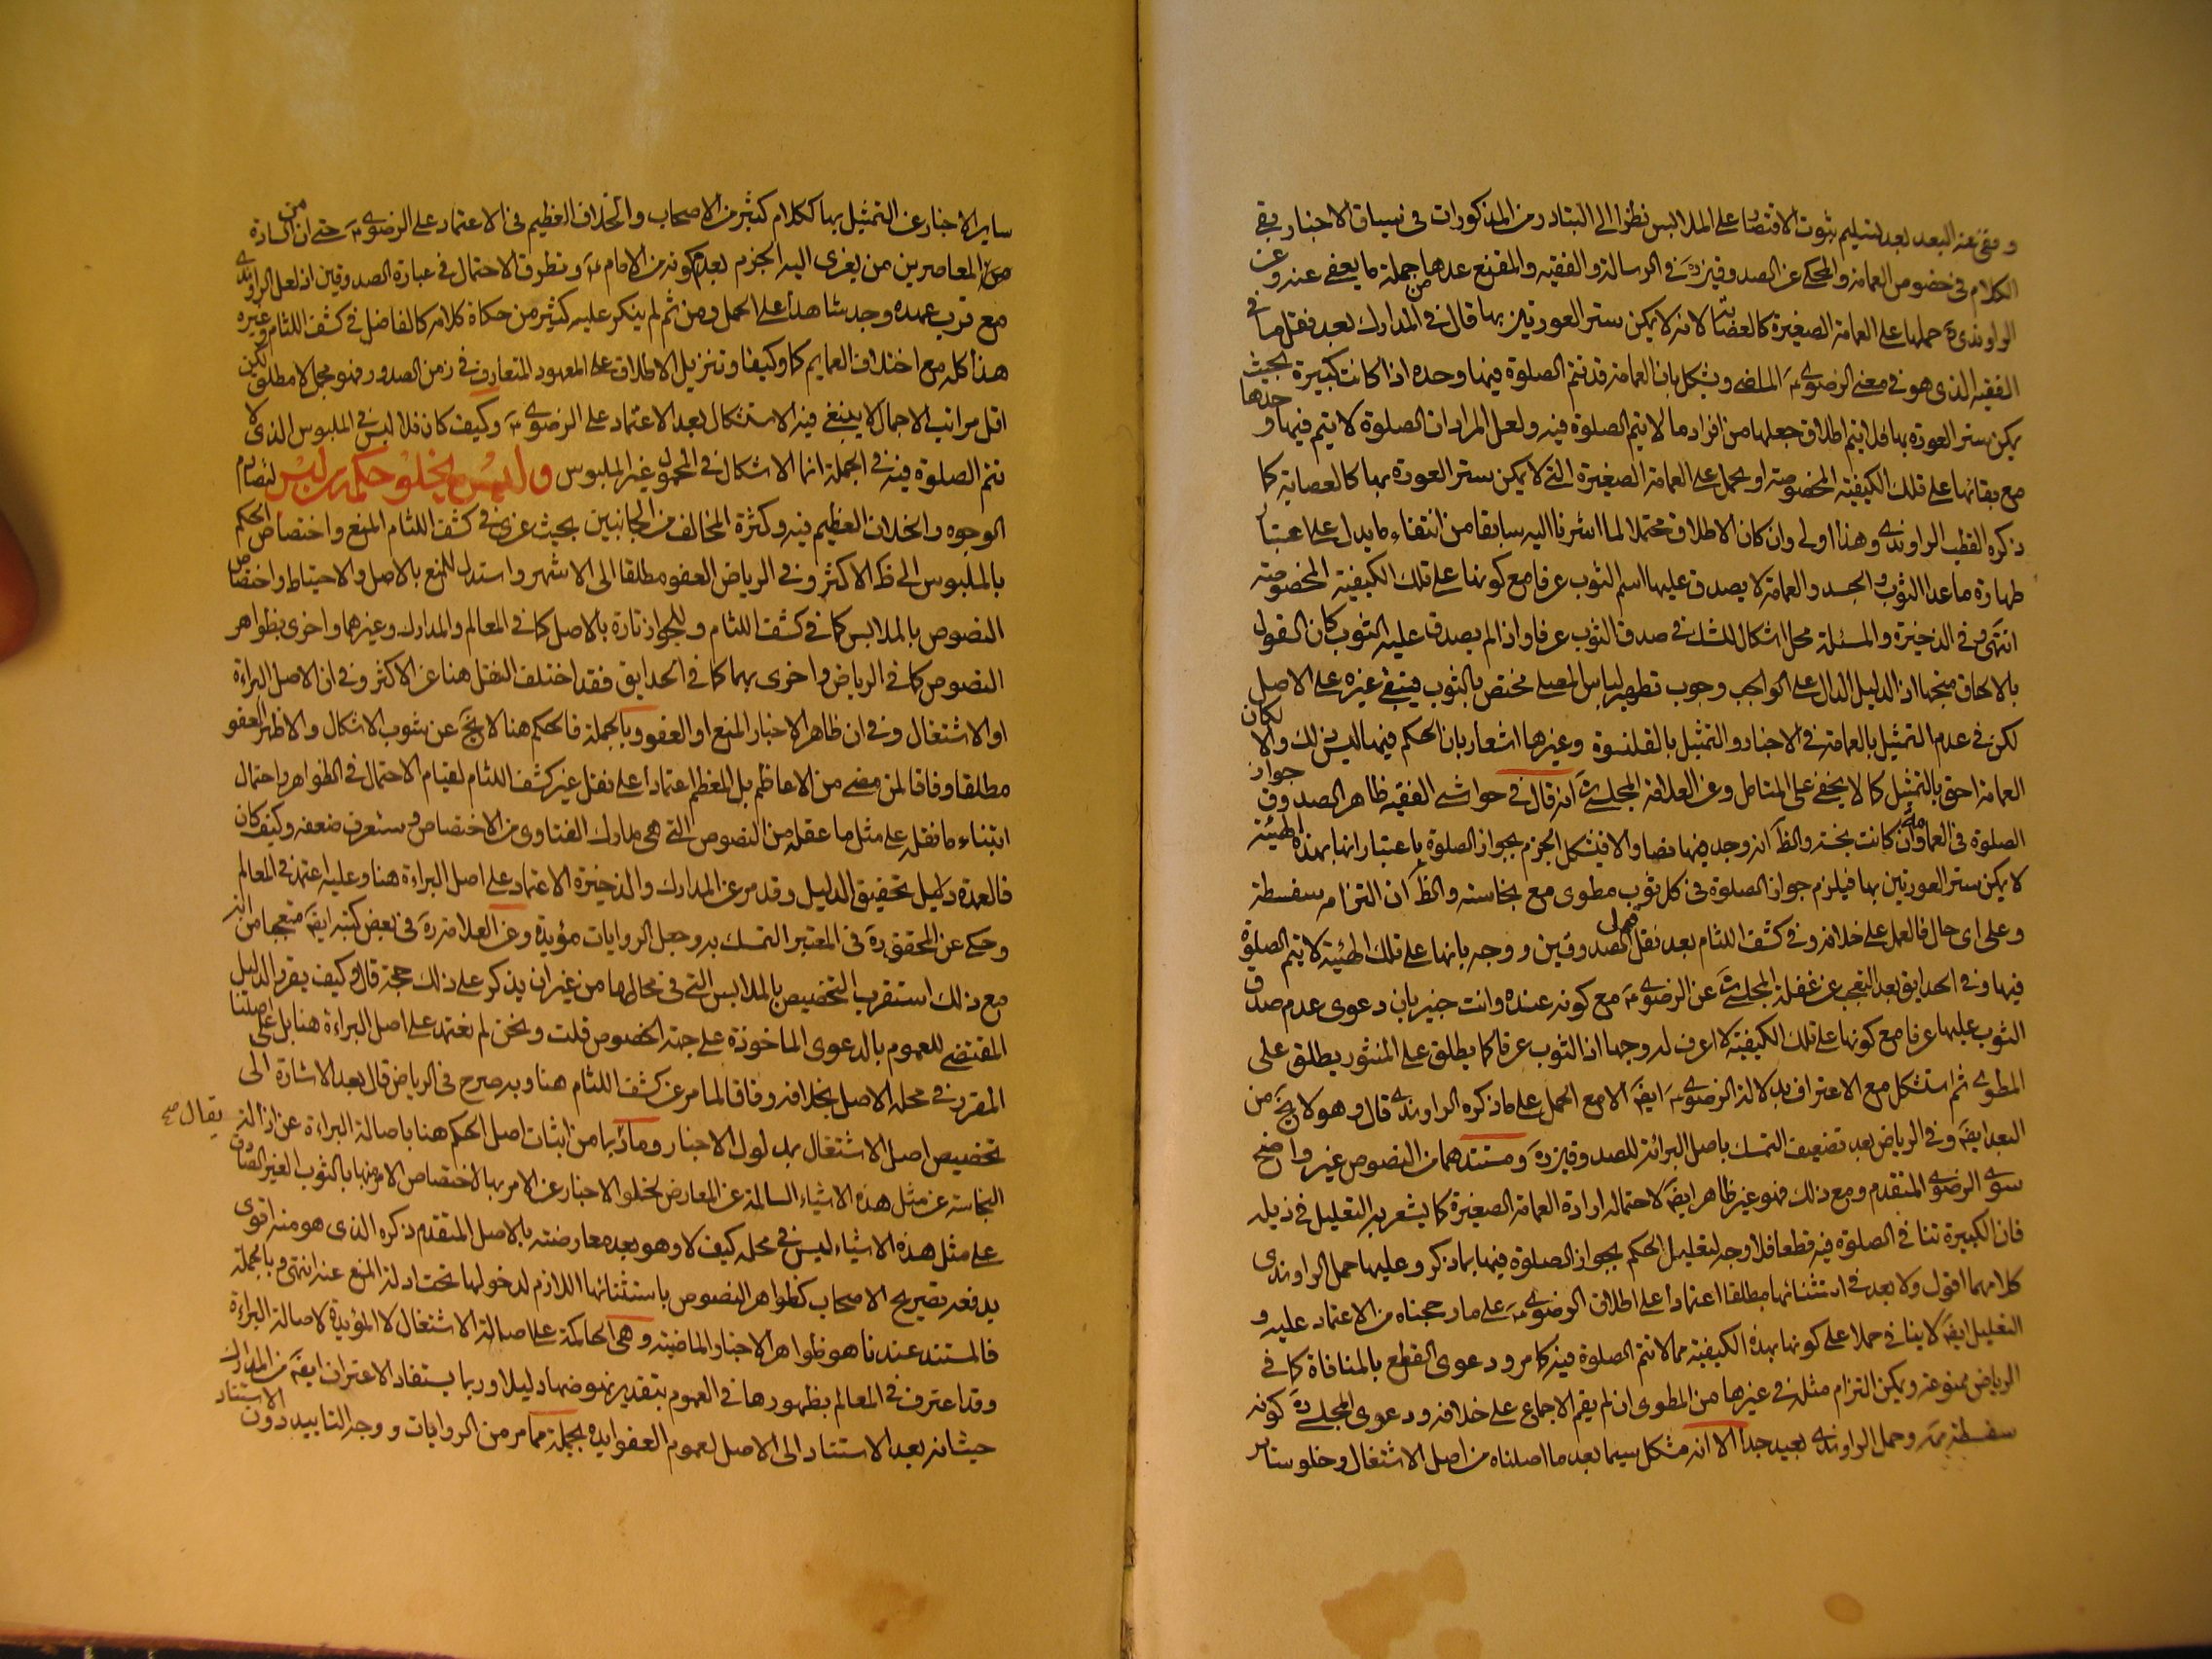 ومقتضى البعد بعد تسليم ثبوت الاقتصار على الملابس نظرا الى التبادر من المذكورات فى سياق الاخبار بقى
الكلام فى خصوص العمامة والمحكى عن الصدوقين ره فى الرسالة والفقيه والمقنع عدها من جملة ما يعفى عنه وعن
الراوندى ره حملها على العمامة الصغيرة كالعصابة لانه لا يمكن ستر العورتين بها قال فى المدارك بعد نقل ما فى
الفقيه الذى هو فى معنى الرضوى الماضى ويشكل بان العمامة قد تتم الصلوة فيها وحده اذا كانت كبيرة بحيث
يمكن ستر العورة بها فلا يتم اطلاق جعلها من افراد ما لا يتم الصلوة فيه ولعل المراد ان الصلوة لا يتم فيها وحدها
مع بقائها على تلك الكيفية المخصوصة او يحمل على العمامة الصغيرة التى لا يمكن ستر العورة بها كالعصابة كما
ذكره القطب الراوندى وهذا اولى وان كان الاطلاق محتملا لما اشرنا اليه سابقا من انتفاء ما يدل على اعتبار
طهارة ما عدا الثوب والجسد والعمامة لا يصدق عليها اسم الثوب عرفا مع كونها على تلك الكيفية المخصوصة
انتهى وفى الذخيرة والمسئلة محل اشكال للشك فى صدق الثوب عرفا واذا لم يصدق عليه الثوب كان القول
بالالحاق متجها اذ الدليل الدال على الواجب وجوب تطهير لباس المصلى مختص بالثوب فيبقى غيره على الاصل
لكن فى عدم التمثيل بالعمامة فى الاخبار والتمثيل بالقلنسوة وغيرها اشعار بان الحكم فيها ليس ذلك والا لكان
العمامة احق بالتمثيل كما لا يخفى على المتامل وعن العلامة المجلسى انه قال فى حواشى الفقيه ظاهر الصدوق جواز
الصلوة فى العمامة وان كانت نجسة والظ انه وجد فيها نصا والا فيشكل الجزم بجواز الصلوة باعتبار انها بهذه الهيئة
لا يمكن ستر العورتين بها فيلزم جواز الصلوة فى كل ثوب مطوى مع نجاسته والظ ان التزامه سفسطة
وعلى اى حال فالعمل على خلافه وفى كشف اللثام بعد نقل قول الصدوقين ووجه بانها على تلك الهيئة لا يتم الصلوة
فيها وفى الحدايق بعد التعجب عن غفلة المجلسى عن الرضوى مع كونه عنده وانت خبير بان دعوى عدم صدق
الثوب عليها عرفا مع كونها على تلك الكيفية لا اعرف له وجها اذ الثوب عرفا كما يطلق على المنشور يطلق على
المطوى ثم استشكل مع الاعتراف بدلالة الرضوى ايضا الا مع الحمل على ما ذكره الراوندى قال وهو لا يخ من
البعد ايضا وفى الرياض بعد تضعيف التمسك باصل البرائة للصدوقين ره ومستندهما من النصوص غير واضح
سوى الرضوى المتقدم ومع ذلك فهو غير ظاهر ايضا لاحتمال ارادة العمامة الصغيرة كما يشعر به التعليل فى ذيله
فان الكبيرة تنافى الصلوة فيه قطعا فلا وجه لتعليل الحكم بجواز الصلوة فيها بما ذكر وعليها حمل الراوندى
كلامهما اقول ولا بعد فى استثنائها مطلقا اعتمادا على اطلاق الرضوى على ما رجحناه من الاعتماد عليه و
التعليل ايضا لا ينافى حملا على كونها بهذه الكيفية مما لا تتم الصلوة فيه كما مر ودعوى القطع بالمنافاة كما فى
الرياض ممنوعة ويمكن التزام مثله فى غيرها من المطوى ان لم يقم الاجماع على خلافه ودعوى المجلسى ره كونه
سفسطة وحمل الراوندى بعيد جدا الا انه مشكل سيما بعد ما اصلناه من اصل الاشتغال وخلو ساير
ساير الاخبار عن التمثيل بها ككلام كثير من الاصحاب والخلاف العظيم فى الاعتماد على الرضوى حتى ان من السادة
المعاصرين من يعزى اليه الجزم بعدم كونه من الامام وتطرق الاحتمال فى عبارة الصدوقين اذ لعل الراوندى
مع قرب عهده وجد شاهدا على الحمل ومن ثم لم ينكر عليه كثير من حكاة كلامه كالفاضل فى كشف اللثام وغيره
هذا كله مع اختلاف العمايم كما وكيفا وتنزيل الاطلاق على المعهود المتعارف فى زمن الصدور فهو مجمل لا مطلق لكن
اقل مراتب الاجمال لا ينبغى فيه الاستشكال بعد الاعتماد على الرضوى وكيف كان فلا لبس فى الملبوس الذى لا
تتم الصلوة فيه فى الجملة انما الاشكال فى المحمول غير الملبوس وليس يخلو حكمه من لبس لتصادم
الوجوه والخلاف العظيم فيه وكثرة المخالف من الجانبين بحيث عزى فى كشف اللثام المنع واختصاص الحكم
بالملبوس الى ظ الاكثر وفى الرياض العفو مطلقا الى الاشهر واستدل للمنع بالاصل والاحتياط واختصاص
النصوص بالملابس كما فى كشف اللثام وللجواز تارة بالاصل كما فى المعالم والمدارك وغيرهما واخرى بظواهر
النصوص كما فى الرياض واخرى بهما كما فى الحدايق فقد اختلف النقل هنا عن الاكثر وفى ان الاصل البراءة
او الاشتغال وفى ان ظاهر الاخبار المنع او العفو وبالجملة فالحكم هنا لا يخ عن شوب الاشكال والاظهر العفو
مطلقا وفاقا لمن مضى من الاعاظم بل المعظم اعتمادا على نقل غير كشف اللثام لقيام الاحتمال فى الظواهر واحتمال
ابتناء ما نقله على مثل ما عقله من النصوص التى هى مدارك الفتاوى من الاختصاص وستعرف ضعفه وكيف كان
فالعمدة دليل تحقيق الدليل وقد مر عن المدارك والذخيرة الاعتماد على اصل البراءة هنا وعليه اعتمد فى المعالم
وحكى عن المحقق ره فى المعتبر التمسك به وجعل الروايات مؤيدة وعن العلامة ره فى بعض كتبه ايضا متعجبا من انه
مع ذلك استقرب التخصيص بالملابس التى فى محالها من غير ان يذكر على ذلك حجة قال وكيف يقرر الدليل
المقتضى للعموم بالدعوى الماخوذة على جهة الخصوص قلت ونحن لم نعتمد على اصل البراءة هنا بل على اصلنا
المقرر فى محله الاصل بخلافه وفاقا لما مر عن كشف اللثام هنا وبه صرح فى الرياض قال بعد الاشارة الى
تخصيص اصل الاشتغال بمدلول الاخبار وما ربما يقال من اثبات اصل الحكم هنا باصالة البراءة عن ازالة
النجاسة عن مثل هذه الاشياء السالمة عن المعارض لخلو الاخبار عن الامر بها لاختصاص الامر منها بالثوب الغير الصادق
على مثل هذه الاشياء ليس فى محله كيف لا وهو بعد معارضته بالاصل المتقدم ذكره الذى هو منه اقوى
يدفعه تصريح الاصحاب كظواهر النصوص باستثنائها اللازم لدخولها تحت ادلة المنع عنه انتهى وبالجملة
فالمستند عندنا هو ظواهر الاخبار الماضية وهى الحاكمة على اصالة الاشتغال لا المؤيدة لاصالة البراءة
وقد اعترف فى المعالم بظهورها فى العموم بتقدير نهوضها دليلا وربما يستفاد الاعتراف ايضا من المدارك
حيث انه بعد الاستناد الى الاصل لعموم العفو ايده بجملة مما مر من الروايات ووجه التاييد دون الاستناد